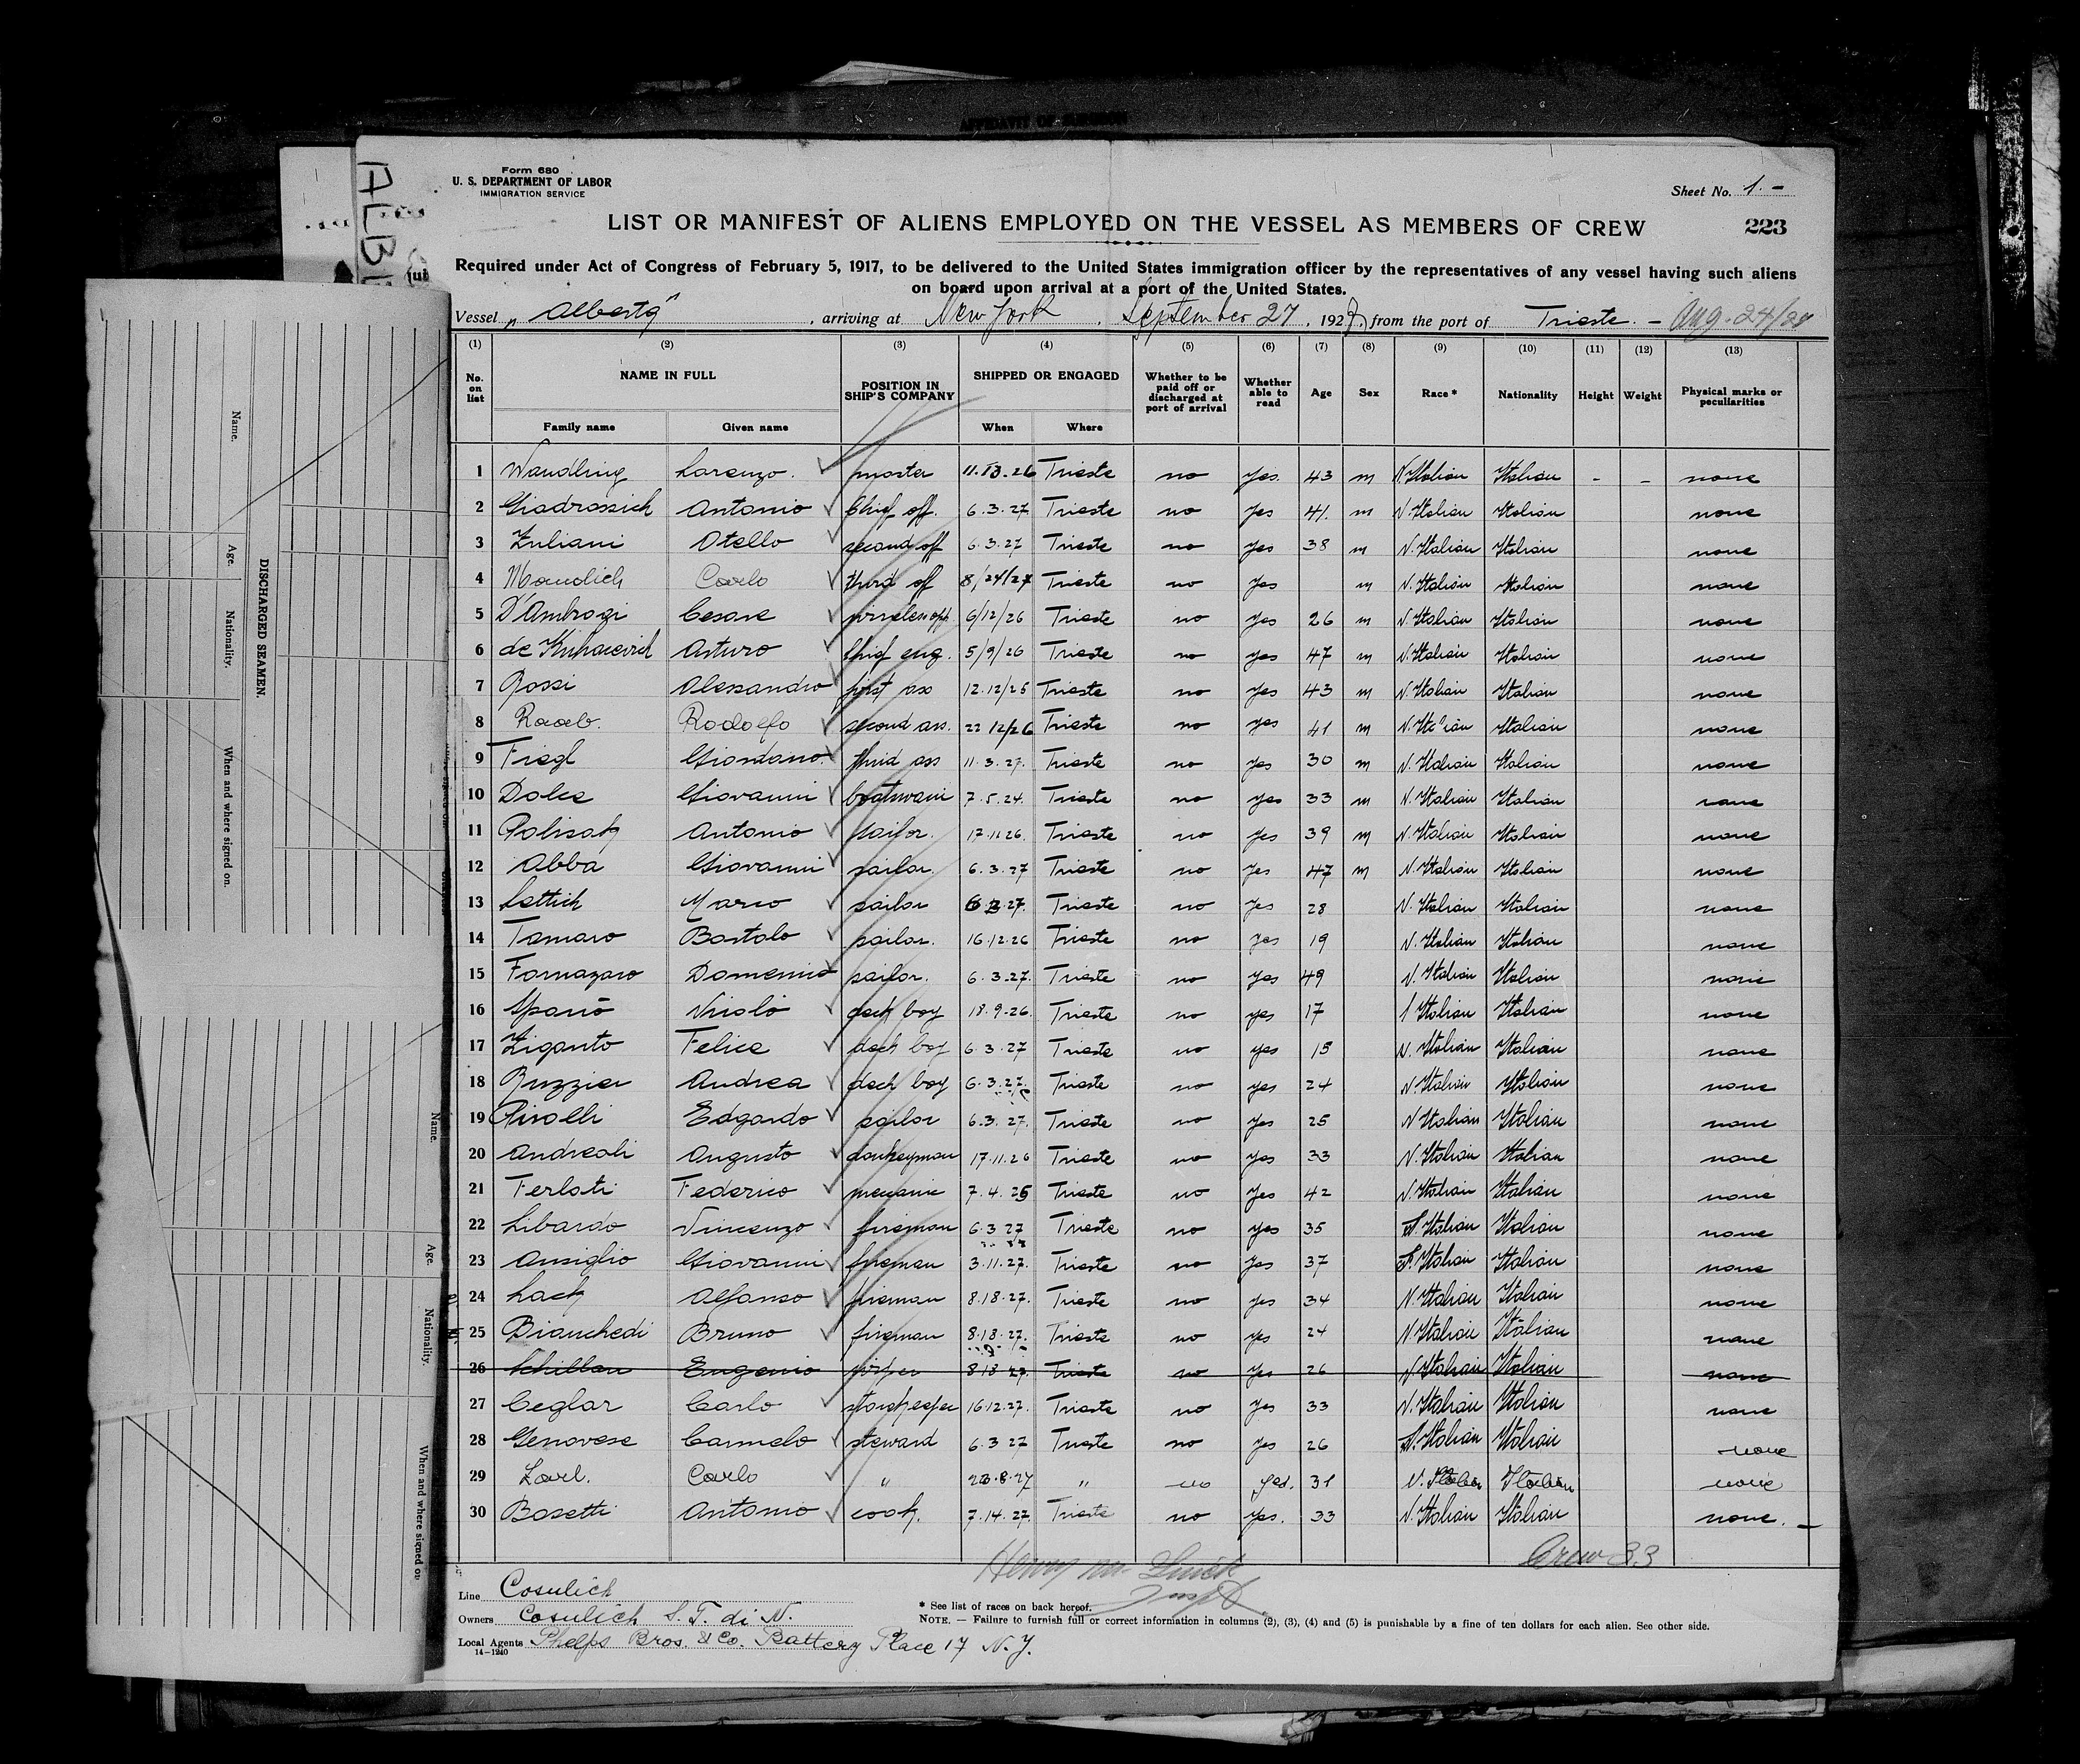 AFFIDAVIT OF SURGEON
Form 680
U. S. DEPARTMENT OF LABOR
IMMIGRATION SERVICE
Sheet No. 1. -
LIST OR MANIFEST OF ALIENS EMPLOYED ON THE VESSEL AS MEMBERS OF CREW
223
Required under Act of Congress of February 5, 1917, to be delivered to the United States immigration officer by the representatives of any vessel having such aliens
on board upon arrival at a port of the United States.
Vessel „ Alberta " , arriving at New York , September 27 , 1927, from the port of Trieste. - Aug. 24/27
(1) (2) (3) (4) (5) (6) (7) (8) (9) (10) (11) (12) (13)
No. on list NAME IN FULL POSITION IN SHIP'S COMPANY SHIPPED OR ENGAGED Whether to be paid off or discharged at port of arrival Whether able to read Age Sex Race * Nationality Height Weight Physical marks or peculiarities
Family name Given name When Where
1 Wandling Lorenzo. master 11.13.26 Trieste no yes. 43 m N.Italian Italian - - none
2 Giadrossich Antonio Chief off. 6.3.27 Trieste no yes 41. m N.Italian Italian none
3 Zuliani Otello second off 6.3.27 Trieste no yes 38 m N.Italian Italian none
4 Mandich Carlo third off 8/24/27 Trieste no yes m N.Italian Italian none
5 D'Ambrozi Cesare wireless opp. 6/12/26 Trieste no yes 26 m N.Italian Italian none
6 de Arturo Chief eng. 5/9/26 Trieste no yes 47 m N.Italian Italian none
7 Rossi Alessandro first ass 12.12/26 Trieste no yes 43 m N.Italian Italian none
8 Raab. Rodolfo second ass. 22 12/26 Trieste no yes 41 m N.Italian Italian none
9 Fiegl Giordano. third ass 11.3.27. Trieste no yes 30 m N.Italian Italian none
10 Dolce Giovanni boatswain 7.5.24. Trieste no yes 33 m N.Italian Italian none
11 Antonio sailor. 17.11.26. Trieste no yes 39 m N.Italian Italian none
12 Abba Giovanni sailor. 6.3.27 Trieste no yes 47 m N.Italian Italian none
13 Lettich Marco sailor 6.3.27. Trieste no yes 28 N.Italian Italian none
14 Tamaro Bortolo sailor. 16.12.26 Trieste no yes 19 N.Italian Italian none
15 Fornazaro Domenico sailor. 6.3.27. Trieste no yes 49 N.Italian Italian none
16 Spanò Nicolò deck boy 18.9.26. Trieste no yes 17 Italian Italian none
17 Ziganto Felice deck boy 6.3.27 Trieste no yes 15 N.Italian Italian none
18 Ruzzier Andrea deck boy 6.3.27. Trieste no yes 24 N.Italian Italian none
19 Edgardo sailor 6.3.27. Trieste no yes 25 N Italian Italian none
20 Andreoli Augusto donkeyman 17.11.26 Trieste no yes 33 N.Italian Italian none
21 Ferlati Federico mecanic 7.4.26 Trieste no yes 42 N.Italian Italian none
22 Libardo Vincenzo fireman 6.3 27 Trieste no yes 35 S.Italian Italian none
23 Ansiglio Giovanni fireman 3.11.27. Trieste no yes 37 S.Italian Italian none
24 Lach Alfonso fireman 8.18.27. Trieste no yes 34 N.Italian Italian none
25 Bianchedi Bruno fireman 8.18.27. Trieste no yes 24 N.Italian Italian none
26 Schillan Eugenio wiper 8.18.27. Trieste no yes 26 N.Italian Italian none
27 Ceglar Carlo storekeeper 16.12.27. Trieste no yes 33 N.Italian Italian none
28 Genovese Carmelo steward 6.3 27 Trieste no yes 26 S.Italian Italian none
29 Zarl. Carlo " 23.8.27 " no yes. 31 N. Italian Italian none
30 Bosetti Antonio cook. 7.14.27. Trieste no yes. 33 N.Italian Italian none. -
Crew 33
Line Cosulich
Owners Cosulich S. T. di N.
Local Agents Phelps Bros. & Co. Battery Place 17 N.Y.
14-1240
* See list of races on back hereof.
NOTE. — Failure to furnish full or correct information in columns (2), (3), (4) and (5) is punishable by a fine of ten dollars for each alien. See other side.
DISCHARGED SEAMEN.
Name. Age. Nationality. When and where signed on.
Name. Age. Nationality. When and where signed on